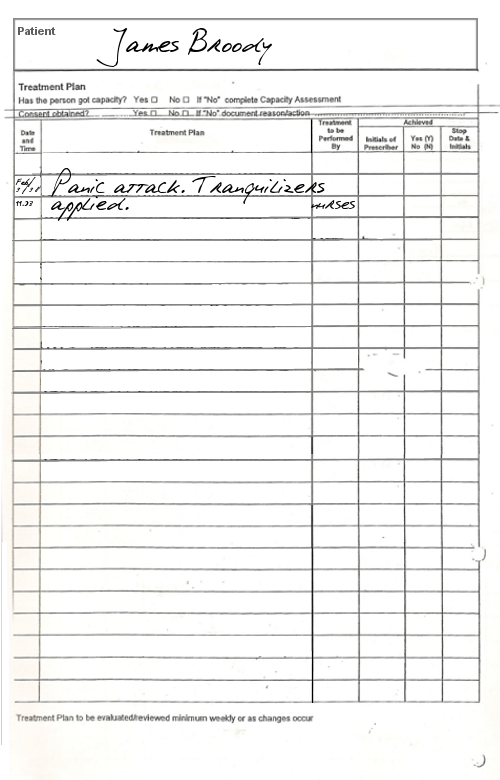 Patient
James Broody
Treatment Plan
Has the person got capacity? Yes ☐ No ☐ If "No" complete Capacity Assessment
Consent obtained? Yes ☐ No ☐ If "No" document reason/action
Date and Time
Treatment Plan
Treatment to be Performed By
Achieved
Initials of Prescriber
Yes (Y) No (N)
Stop Date & Initials
Feb/
Panic attack. Tranquilizers
11.23 applied. nurses
Treatment Plan to be evaluated/reviewed minimum weekly or as changes occur